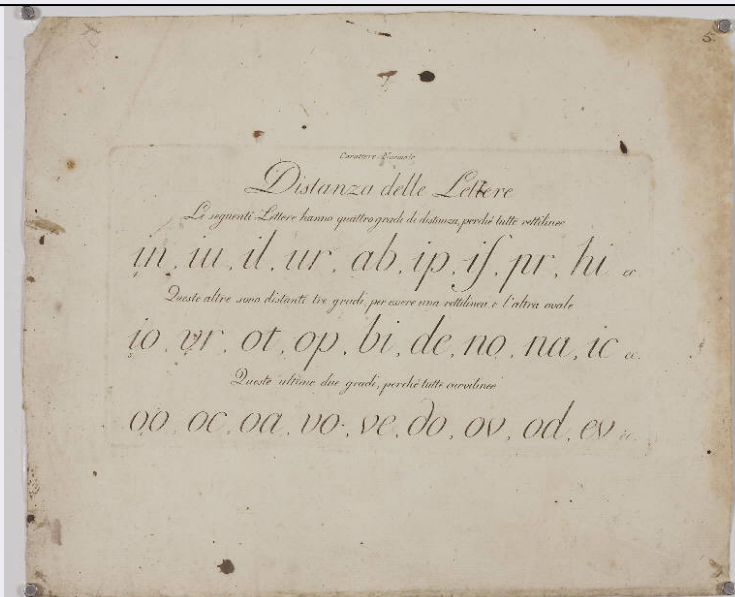 Carattere
Distanza delle Lettere
Le seguenti Lettere hanno quattro gradi di distanza, perché tutte rettilinee
in, iu, il, ur, ab, ip, if, pr, hi &c.
Queste altre sono distanti tre gradi, per essere una rettilinea, e l'altra ovale
io, vr, ot, op, bi, de, no, na, ic &c.
Queste ultime due gradi, perché tutte curvilinee
oo, oc, oa, vo, ve, do, ov, od, ev &c.
5.